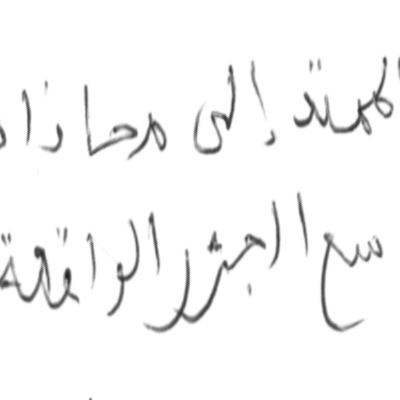 الممتد إلى محاذاة
مع الجزر الواقعة